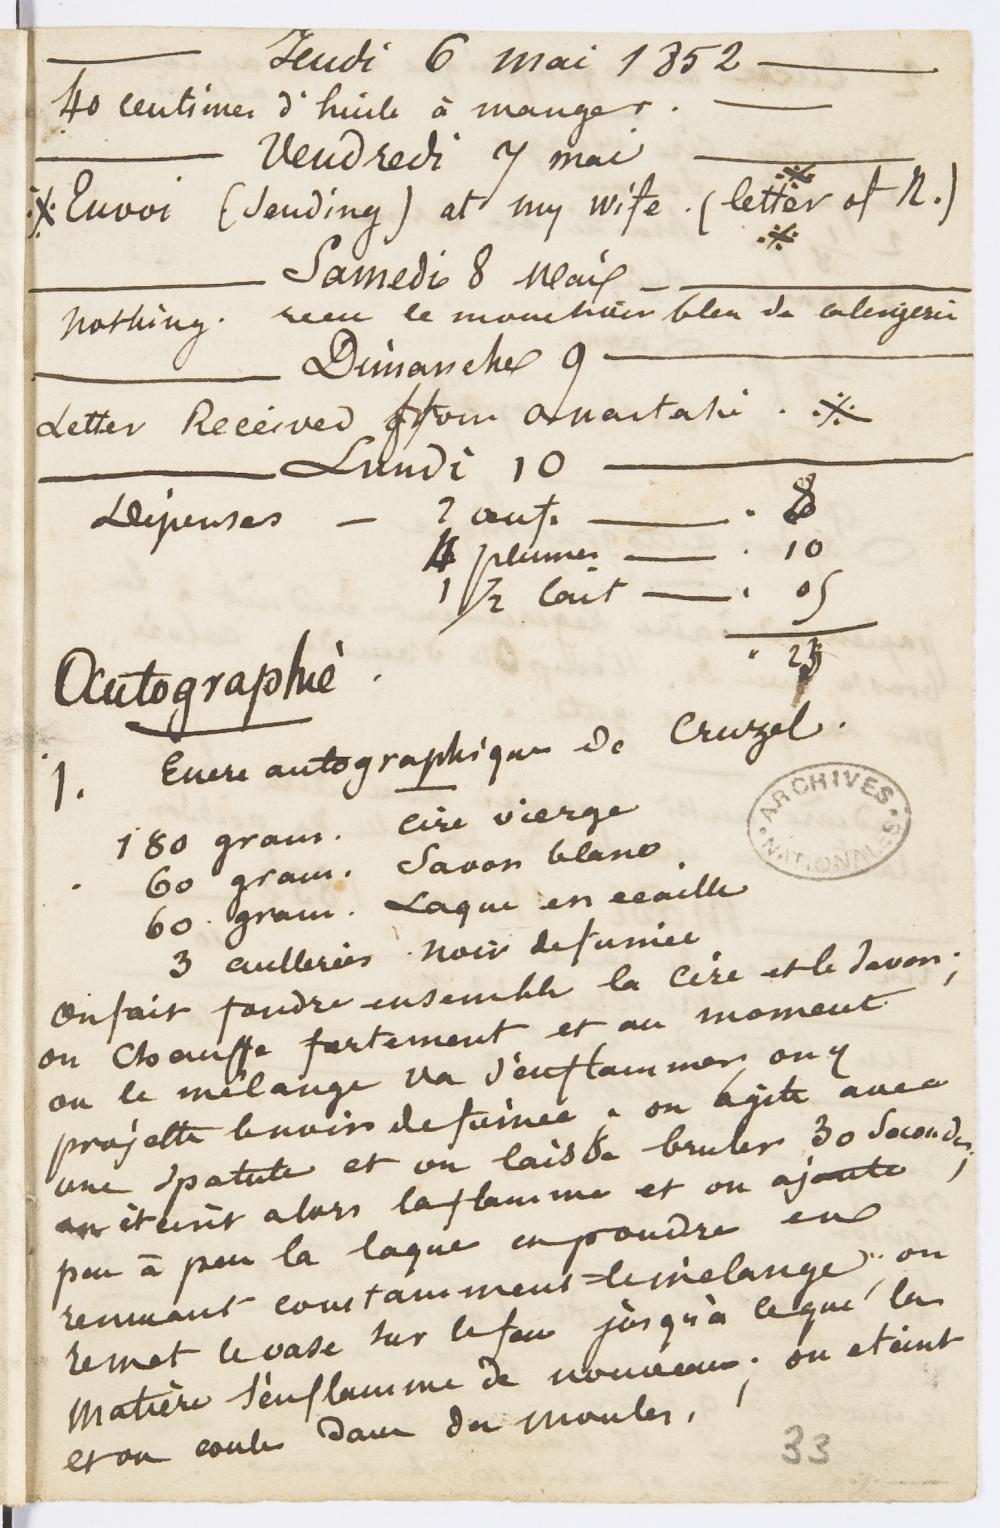 Jeudi 6 mai 1852
40 centimes d'huile à manger.
Vendredi 7 mai
※ Envoi (sending) at my wife. (letter of N.) ※
Samedi 8 Mai
nothing. recu le mouchoir bleu de
Dimanche 9
Letter Received from anastasi. ※
Lundi 10
Dépenses — 2 œufs — . 8
4 plumes — . 10
1 1/2 lait — . 05
. 23
Autographie.
1. Encre autographique de Cruzel.
180 gram. cire vierge
60 gram. Savon blanc.
60 gram. Laque en ecaille
3 cuillerées noir de fumée
On fait fondre ensemble la cire et le savon;
on chauffe fortement et au moment
ou le mélange va s'enflammer, on y
projette le noir de fumée; on agite avec
une spatule et on laisse bruler 30 secondes;
on éteint alors la flamme et on ajoute
peu à peu la laque en poudre en
remuant constamment le mélange; on
remet le vase sur le feu jusqu'à ce que la
Matière s'enflamme de nouveau; on eteint
et on coule dans des moules.
ARCHIVES NATIONALES
33